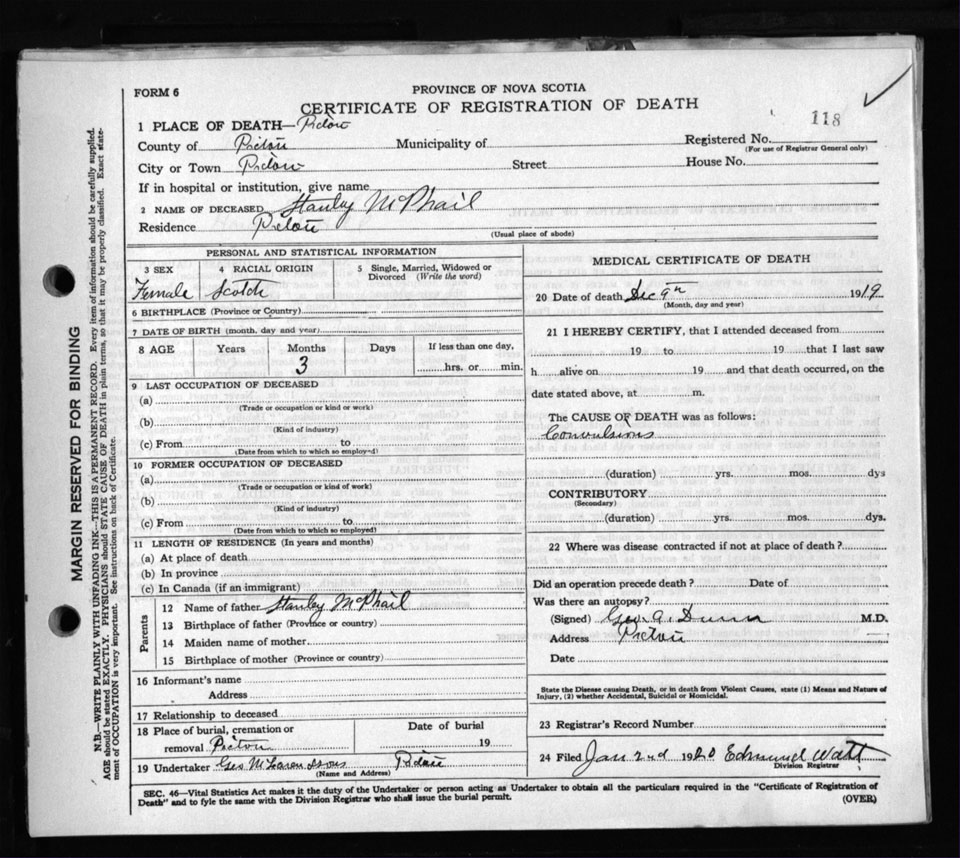 FORM 6
PROVINCE OF NOVA SCOTIA
CERTIFICATE OF REGISTRATION OF DEATH
118
1 PLACE OF DEATH—Pictou
County of Pictou Municipality of Registered No.
(For use of Registrar General only)
City or Town Pictou Street House No.
If in hospital or institution, give name
2 NAME OF DECEASED Stanley McPhail
Residence Pictou
(Usual place of abode)
PERSONAL AND STATISTICAL INFORMATION
3 SEX 4 RACIAL ORIGIN 5 Single, Married, Widowed or
Divorced (Write the word)
Female Scotch
6 BIRTHPLACE (Province or Country)
7 DATE OF BIRTH (month, day and year)
8 AGE Years Months Days If less than one day,
3 hrs. or min.
9 LAST OCCUPATION OF DECEASED
(a)
(Trade or occupation or kind or work)
(b)
(Kind of industry)
(c) From to
(Date from which to which so employed)
10 FORMER OCCUPATION OF DECEASED
(a)
(Trade or occupation or kind of work)
(b)
(Kind of industry)
(c) From to
(Date from which to which so employed)
11 LENGTH OF RESIDENCE (In years and months)
(a) At place of death
(b) In province
(c) In Canada (if an immigrant)
Parents
12 Name of father Stanley McPhail
13 Birthplace of father (Province or country)
14 Maiden name of mother
15 Birthplace of mother (Province or country)
16 Informant's name
Address
17 Relationship to deceased
18 Place of burial, cremation or Date of burial
removal Pictou 19
19 Undertaker Geo McLaren &sons Pictou
(Name and Address)
MEDICAL CERTIFICATE OF DEATH
20 Date of death Dec 9th 1919
(Month, day and year)
21 I HEREBY CERTIFY, that I attended deceased from
19 to 19 that I last saw
h alive on 19 and that death occurred, on the
date stated above, at m.
The CAUSE OF DEATH was as follows:
Convulsions
(duration) yrs. mos. dys
CONTRIBUTORY
(Secondary)
(duration) yrs. mos. dys.
22 Where was disease contracted if not at place of death?
Did an operation precede death? Date of
Was there an autopsy?
(Signed) Geo. A. Dunn M.D.
Address Pictou
Date
State the Disease causing Death, or in death from Violent Causes, state (1) Means and Nature of
Injury, (2) whether Accidental, Suicidal or Homicidal.
23 Registrar's Record Number
24 Filed Jan 2nd 1920 Edmund Watt
Division Registrar
SEC. 46—Vital Statistics Act makes it the duty of the Undertaker or person acting as Undertaker to obtain all the particulars required in the "Certificate of Registration of
Death" and to fyle the same with the Division Registrar who shall issue the burial permit.
(OVER)
MARGIN RESERVED FOR BINDING
N.B.—WRITE PLAINLY WITH UNFADING INK—THIS IS A PERMANENT RECORD. Every item of information should be carefully supplied.
AGE should be stated EXACTLY. PHYSICIANS should STATE CAUSE OF DEATH in plain terms, so that it may be properly classified. Exact state-
ment of OCCUPATION is very important. See instructions on back of Certificate.